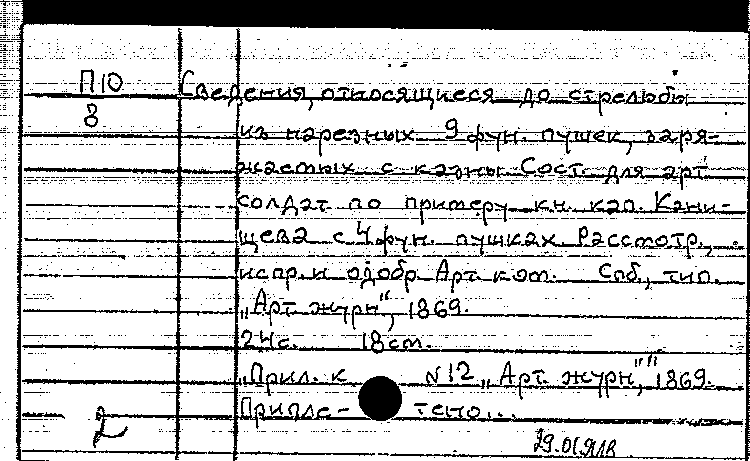 П10 Сведения, относящиеся до стрельбы
8
из нарезных 9 фун. пушек, заря-
жаемых с казны. Сост. для арт.
солдат по примеру кн. кап. Кани-
щева с 4 фун. пушках. Рассмотр.,
испр. и одобр. Арт. ком. Спб., тип.
"Арт. журн", 1869.
24с. 18см.
"Прил. к N12 "Арт. журн", 1869.
Припле- тено...
2
29.01.91